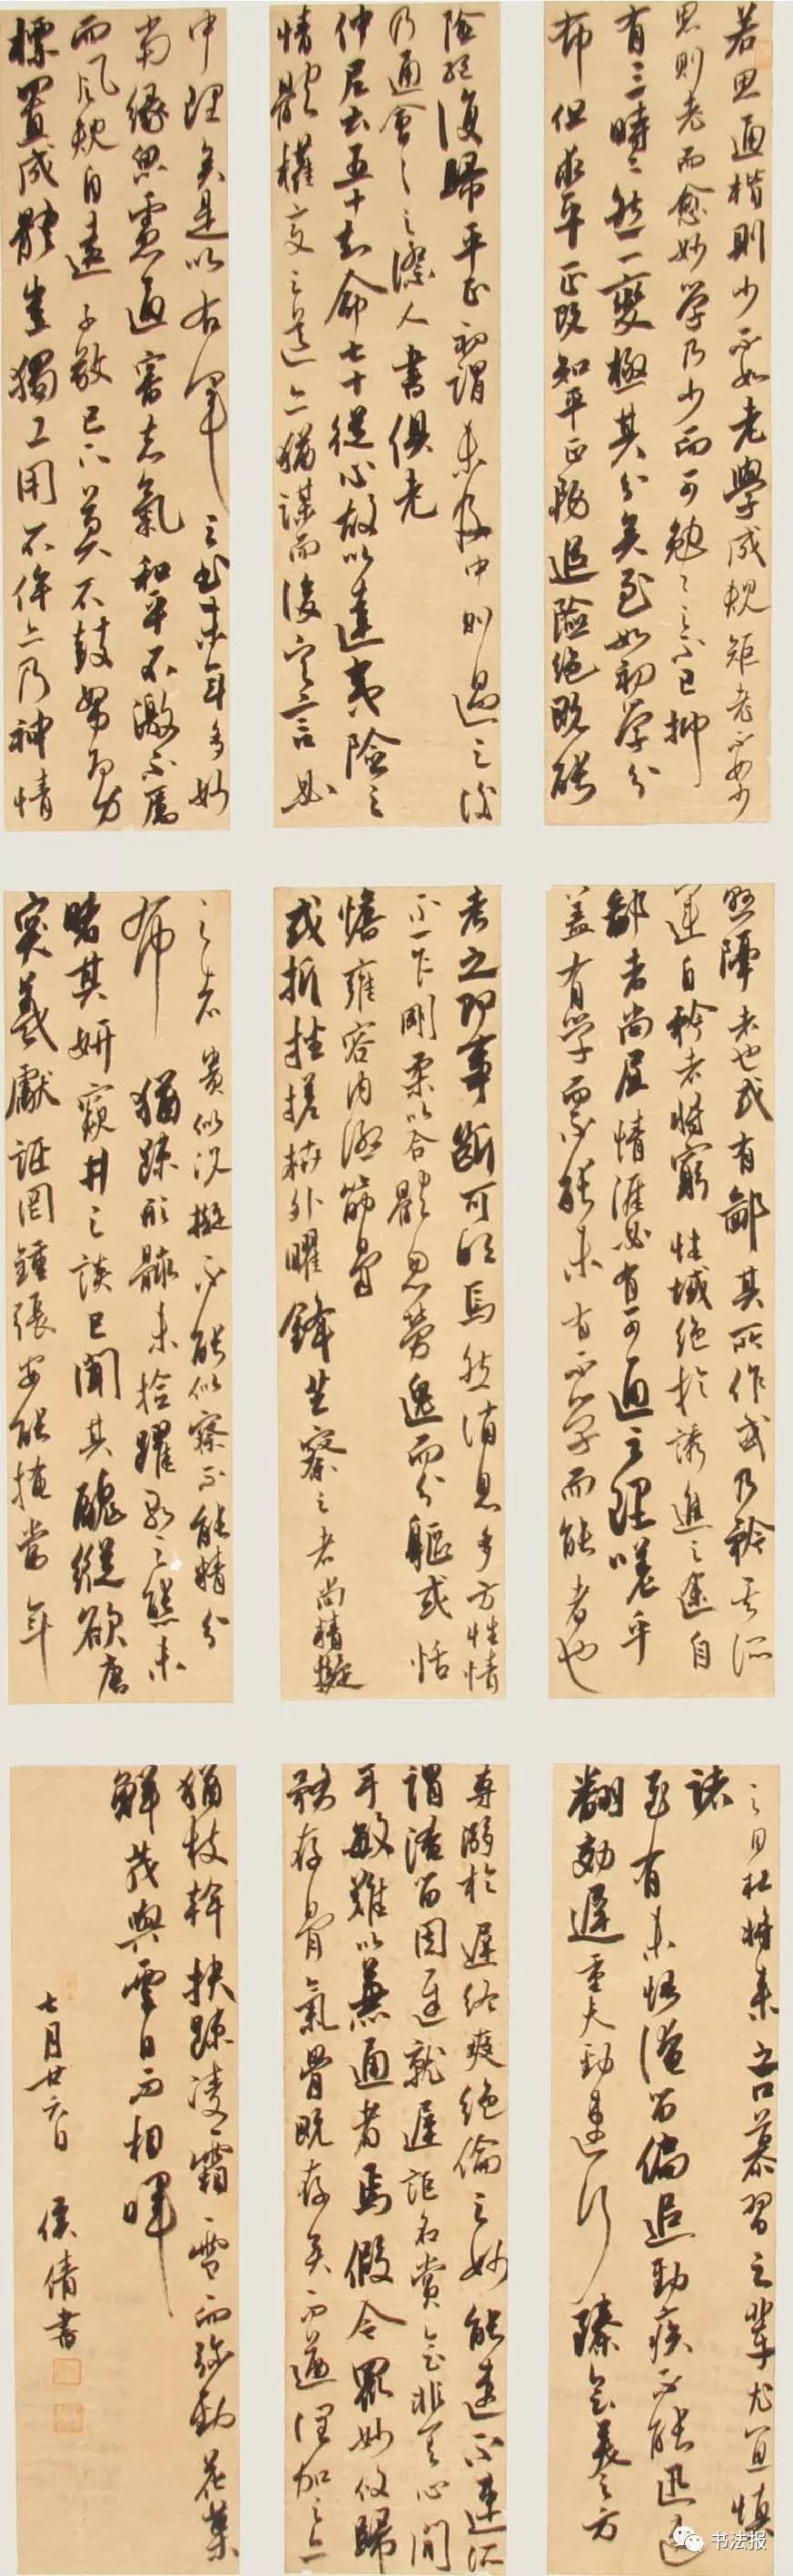 若思通楷則少不如老學成規矩老不如少
思則老而愈妙学乃少而可勉勉之不已抑
有三時時然一變極其分矣至如初学分
布但求平正既知平正務追險絕既能
險絕復歸平正初謂未及中則過之後
乃通會之之際人書俱老
仲尼云五十知命七十從心故以達夷險之
情體權變之道亦猶謀而後言必
中理矣是以右軍之書末年多妙
當緣思慮通審志氣和平不激不厲
而風規自遠子敬已下莫不鼓努為力
標置成體豈獨工用不侔亦乃神情
懸隔者也或有鄙其所作或乃矜其所
運自矜者將窮性域絕於誘進之途自
鄙者尚屈情涯必有可通之理嗟乎
蓋有学而不能未有不学而能者也
考之即事斷可明焉然消息多方性情
不一乍剛柔以合體忽勞逸而分軀或恬
憺雍容內涵筋骨
或折挫槎枿外曜鋒芒察之者尚精擬
之者貴似況擬不能似察不能精分
布猶疎形骸未撿躍泉之態未
睹其妍窺井之談已聞其醜縱欲唐
突羲獻誣罔鍾張安能掩當年
之目杜將來之口慕習之輩尤宜慎
諸
至有未悟淹留偏追勁疾不能迅速
翻效遲重夫勁速行臻會美之方
專溺於遲終爽絕倫之妙能速不速所
謂淹留因遲就遲詎名賞會非其心閑
手敏難以兼通者焉假令眾妙攸歸
務存骨氣骨既存矣而遒潤加之亦
猶枝幹扶疎凌霜雪而彌勁花葉
鮮茂與雲日而相暉
七月廿六日 侯倩書
书法报